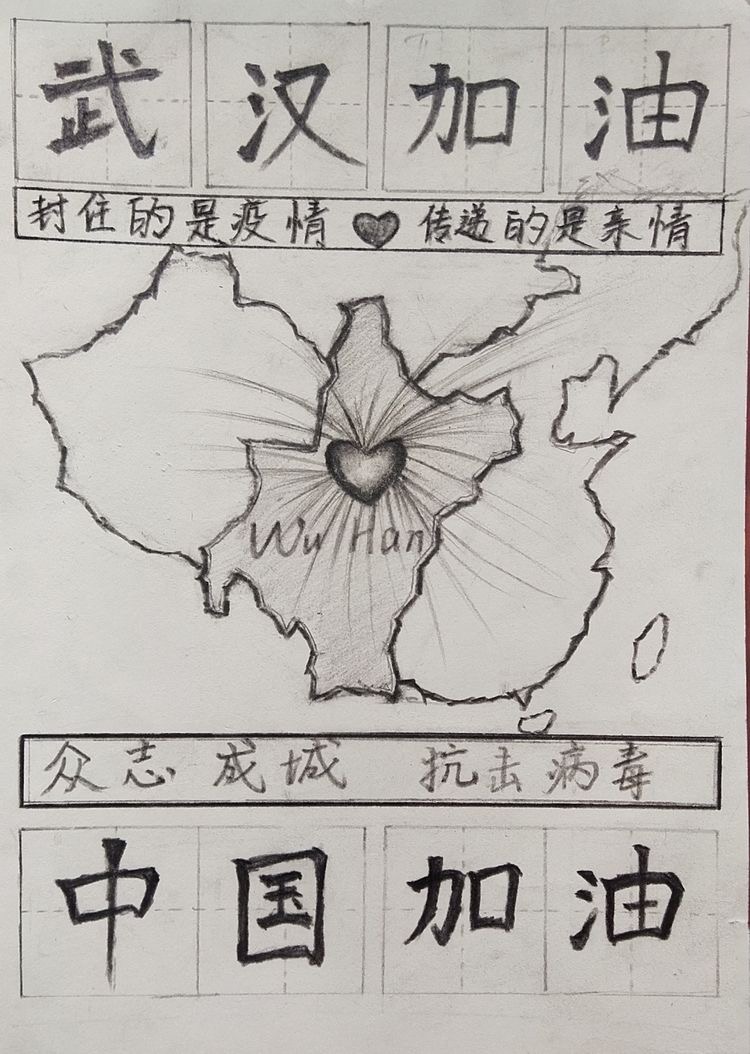 武汉加油
封住的是疫情 传递的是亲情
Wu Han
众志成城 抗击病毒
中国加油